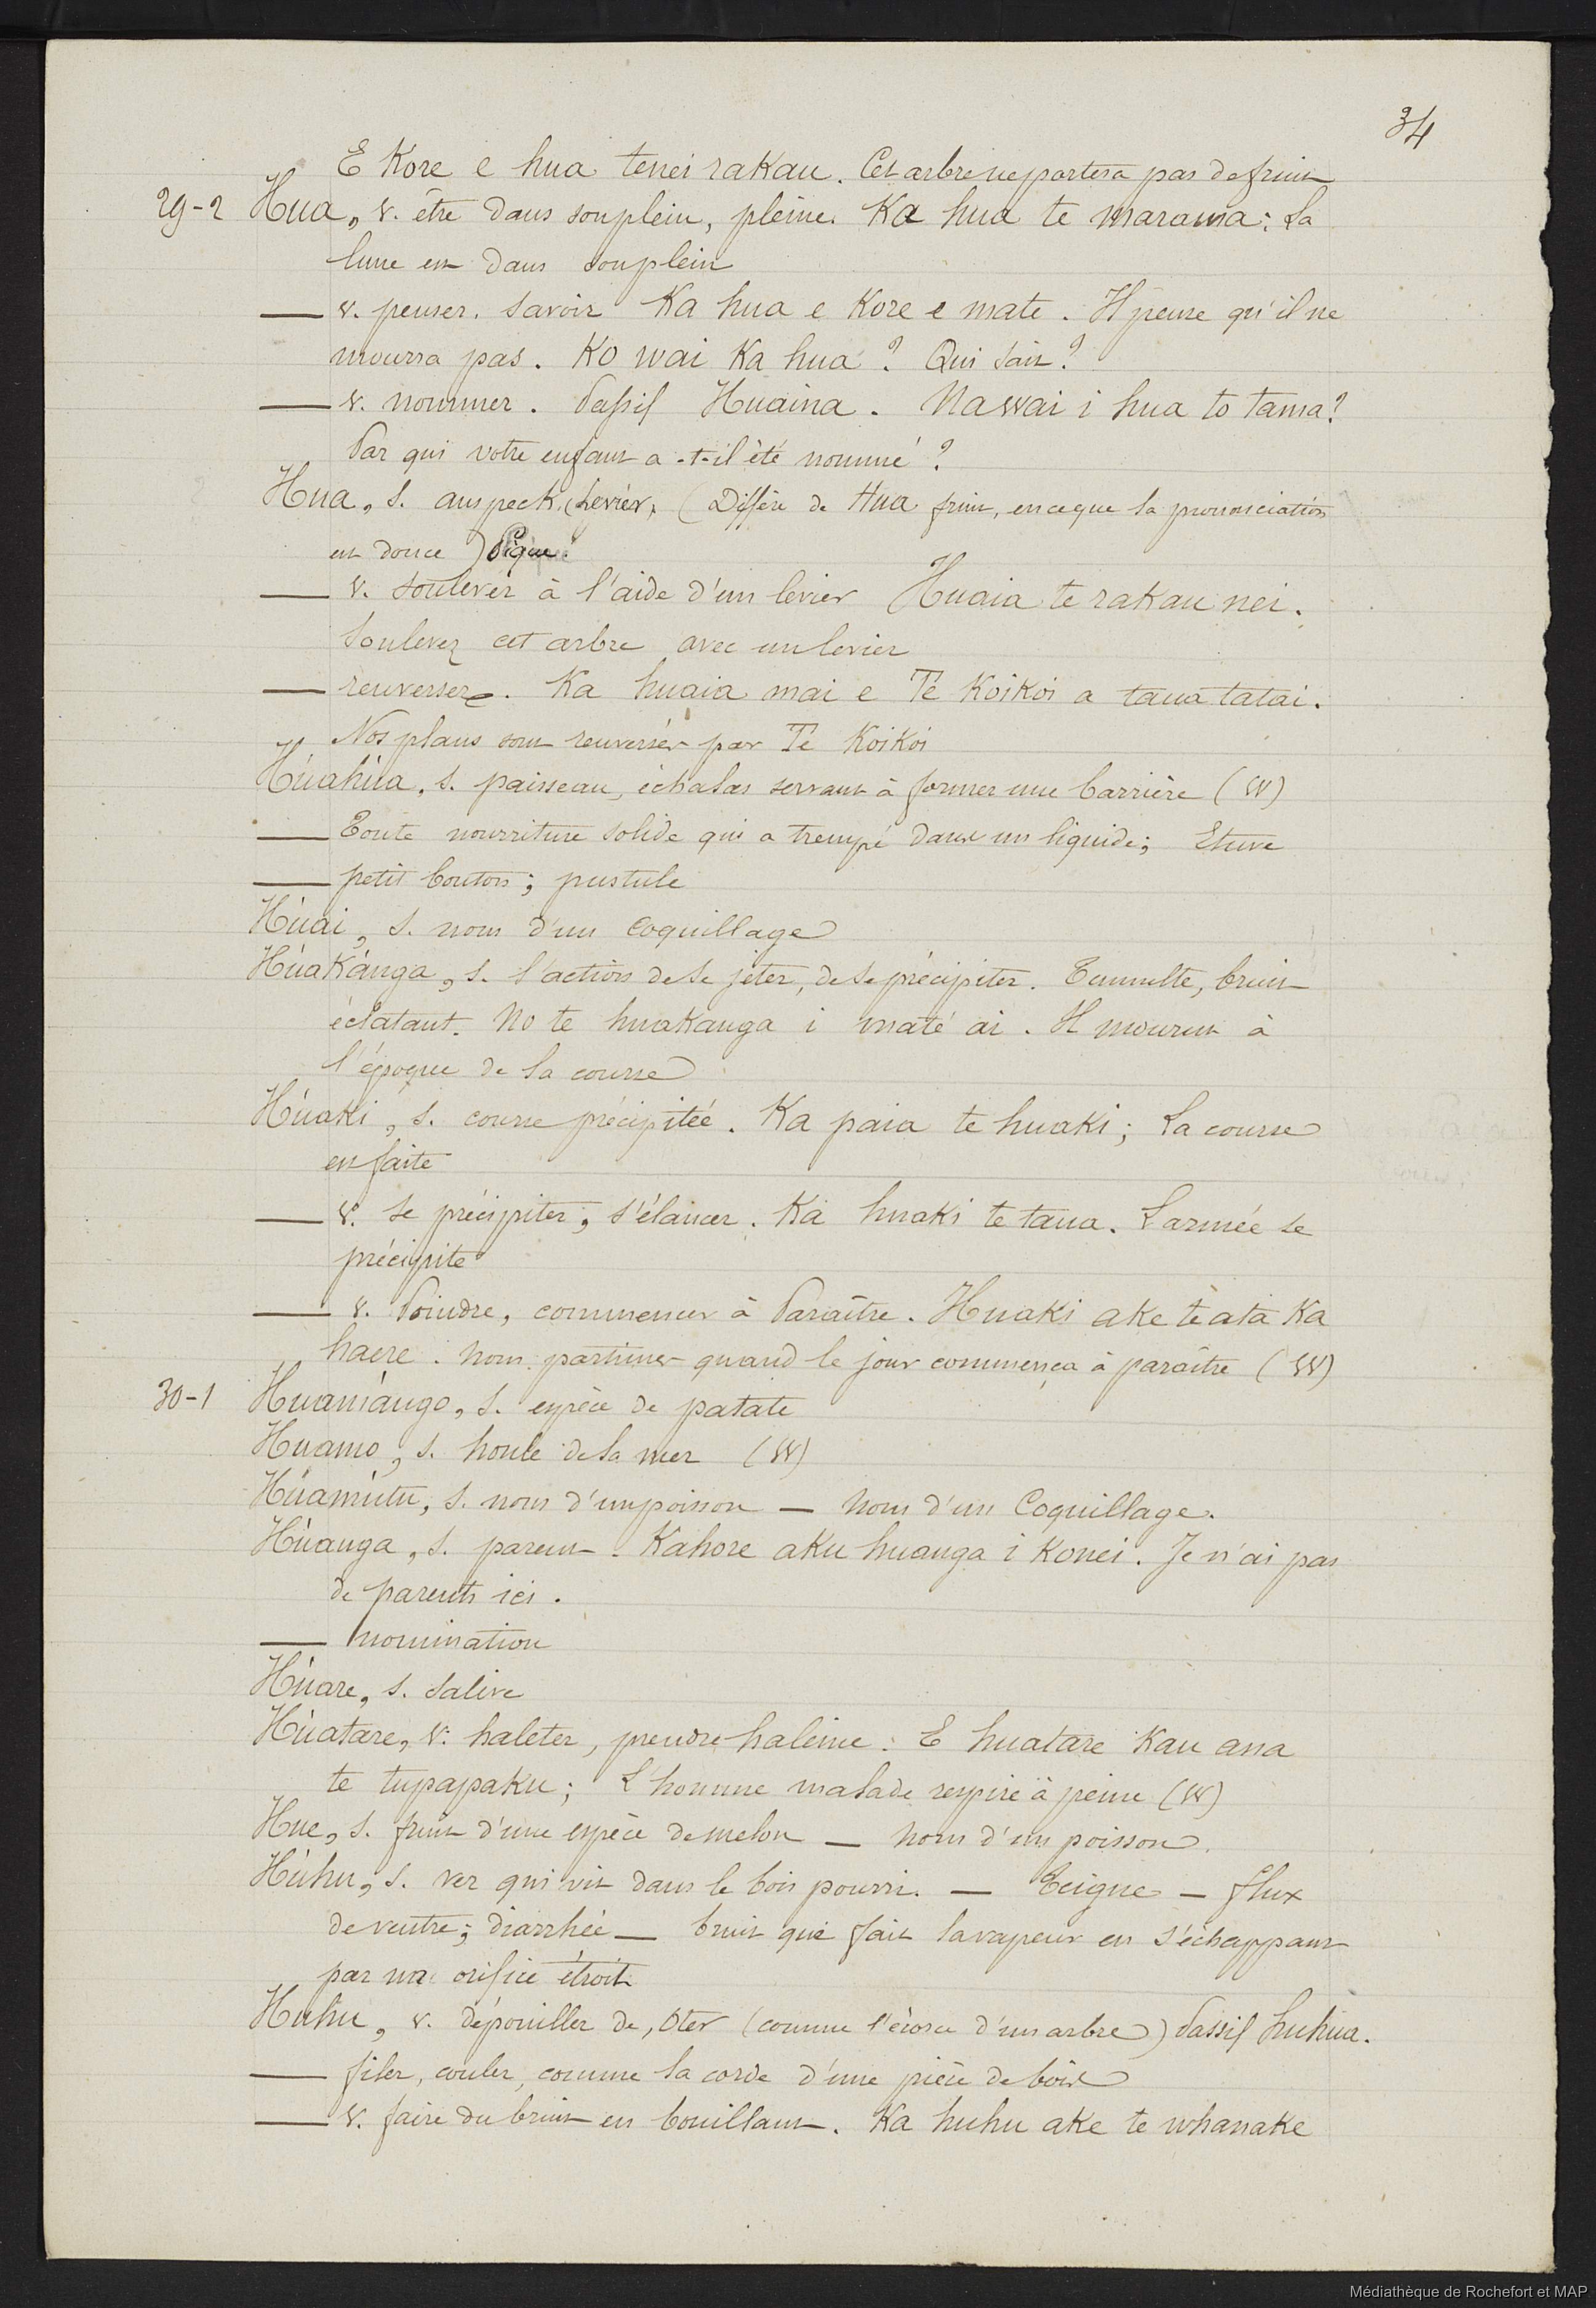 34
E Kore e hua tenei rakau. Cet arbre ne portera pas de fruit
29-2 Hua, v. être dans son plein, pleine. Ka hua te marama: La
lune est dans son plein
— v. penser, savoir Ka hua e Kore e mate. Il pense qu'il ne
mourra pas. Ko wai Ka hua? Qui sait?
— v. nommer. Passif Huaina. Nawai i hua to tama?
Par qui votre enfant a-t-il été nommé?
Hua, s. anspeck, levier, (Diffère de Hua fruit, en ce que la prononciation
est douce) Pique
— v. soulever à l'aide d'un levier Huaia te rakau nei.
Soulevez cet arbre avec un levier
— renverser. Ka huaia mai e Te Koikoi a taua tatai.
Nos plans sont renversés par Te Koikoi
Húahúa, s. paisseau, échalas servant à former une barrière (W)
— Toute nourriture solide qui a trempé dans un liquide; Etuve
— petit bouton; pustule
Húai, s. nom d'un Coquillage
Húakánga, s. l'action de se jeter, de se précipiter. Tumulte, bruit
éclatant. No te huakanga i maté ai. Il mourut à
l'époque de la course
Húaki, s. course précipitée. Ka paia te huaki; La course
est faite
— v. se précipiter, s'élancer. Ka huaki te taua. L'armée se
précipite
— v. Poindre, commencer à Paraître. Huaki ake te ata Ka
haere. Nous partimes quand le jour commença à paraître (W)
30-1 Huamángo, s. espèce de patate
Huamo, s. houle de la mer (W)
Húamútu, s. nom d'un poisson — Nom d'un Coquillage.
Húanga, s. parent. Kahore aku huanga i Konei. Je n'ai pas
de parents ici.
— nomination
Húare, s. Salive
Húatare, v. haleter, prendre haleine. E huatare Kau ana
te tupapaku; L'homme malade respire à peine (W)
Hue, s. fruit d'une espèce de melon — Nom d'un poisson.
Húhu, s. ver qui vit dans le bois pourri. — Teigne — flux
de ventre; diarrhée — bruit que fait la vapeur en s'échappant
par un orifice étroit
Huhu, v. dépouiller de, ôter (comme l'écorce d'un arbre) Passif huhua.
— filer, couler, comme la corde d'une pièce de bois
— v. faire du bruit en bouillant. Ka huhu ake te whanake
Médiathèque de Rochefort et MAP